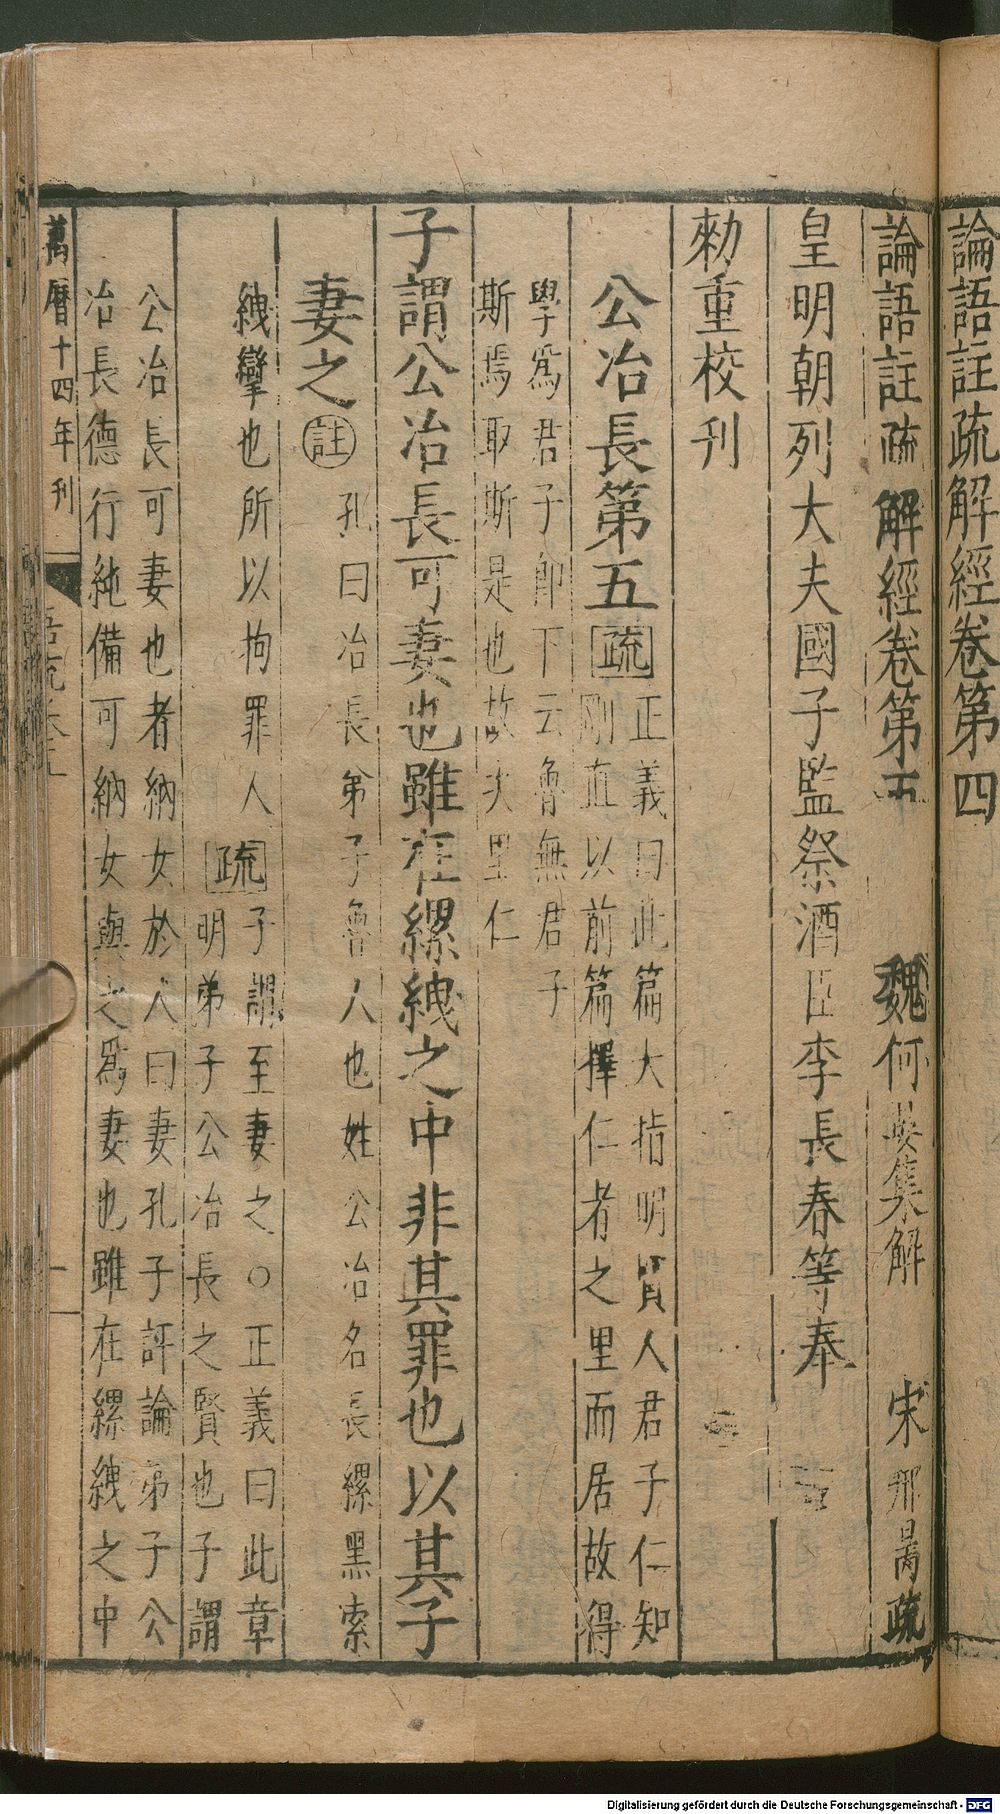 論語註疏解經卷第四
論語註疏解經卷第五 魏何晏集解 宋邢昺疏
皇明朝列大夫國子監祭酒臣李長春等奉
勑重校刊
公冶長第五疏 正義曰此篇大指明賢人君子仁知
剛直以前篇擇仁者之里而居故得
學爲君子卽下云魯無君子
斯焉取斯是也故次里仁
子謂公冶長可妻也雖在縲絏之中非其罪也以其子
妻之註 孔曰冶長弟子魯人也姓公冶名長縲黑索
絏攣也所以拘罪人疏 子謂至妻之○正義曰此章
明弟子公冶長之賢也子謂
公冶長可妻也者納女於人曰妻孔子評論弟子公
冶長德行純備可納女與之爲妻也雖在縲絏之中
萬曆十四年刊
一
Digitalisierung gefördert durch die Deutsche Forschungsgemeinschaft - DFG